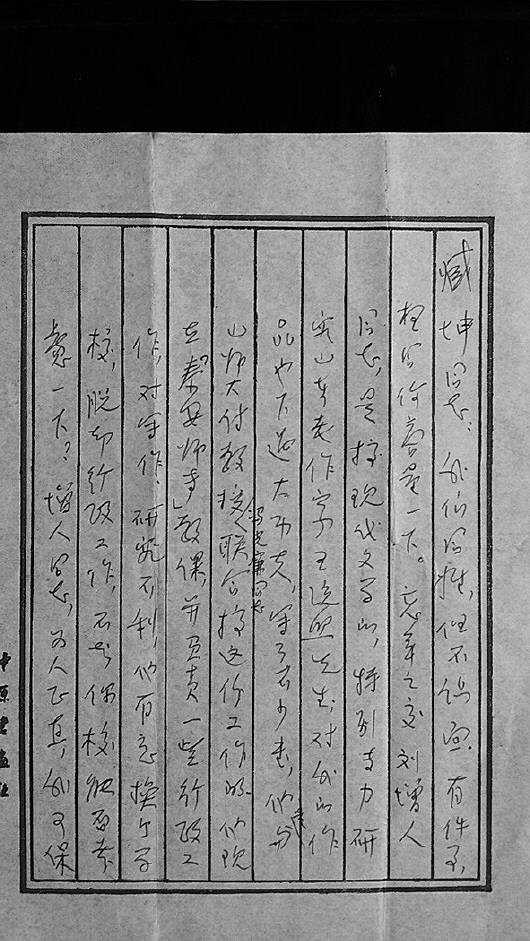 臧坤同志:我们同姓,但不识面。有件事,
想同你商量一下。忘年之交刘增人
同志,是搞现代文学的,特别专力研
究山东老作家王统照先生,对我的作
品也下过大功夫,写了若干书,他与
山师大付教授冯光廉同志联合搞这份工作的。他现
在“泰安师专”教课,并负责一些行政工
作,对写作、研究不利,他有意换个学
校,脱却行政工作,不知你校能否考
虑一下?增人同志,为人正直,我可保
中原书画社